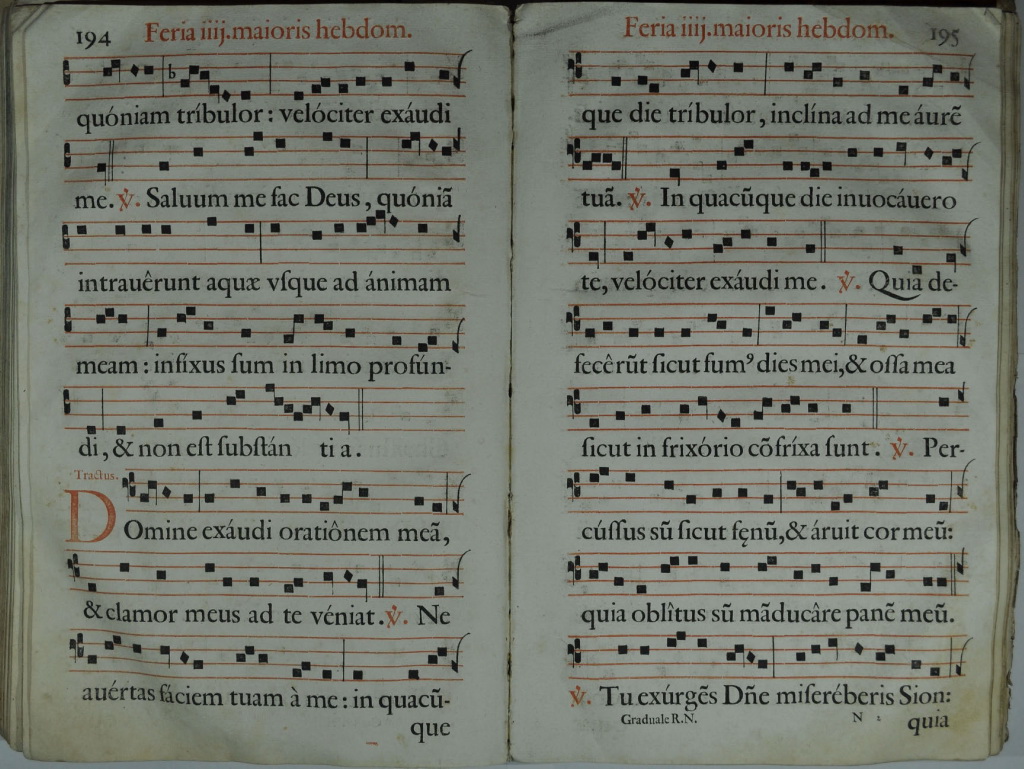 194 Feria iiij. maioris hebdom.
quóniam tríbulor : velóciter exáudi
me. ℣. Saluum me fac Deus, quóniã
intrauêrunt aquæ vſque ad ánimam
meam : infíxus ſum in limo profún-
di, & non eſt ſubſtán ti a.
Tractus.
DOmine exáudi oratiônem meã,
& clamor meus ad te véniat. ℣. Ne
auértas fáciem tuam à me : in quacũ-
que
Feria iiij. maioris hebdom. 195
que die tríbulor, inclína ad me áurẽ
tuã. ℣. In quacũque die inuocáuero
te, velóciter exáudi me. ℣. Quia de-
fecêrũt ſicut fumꝰ dies mei, & oſſa mea
ſicut in frixório cõfríxa ſunt. ℣. Per-
cúſſus sũ ſicut fęnũ, & áruit cor meũ:
quia oblîtus sũ mãducâre panẽ meũ.
℣. Tu exúrgẽs Dñe miſeréberis Sion:
Graduale R.N. N : quia